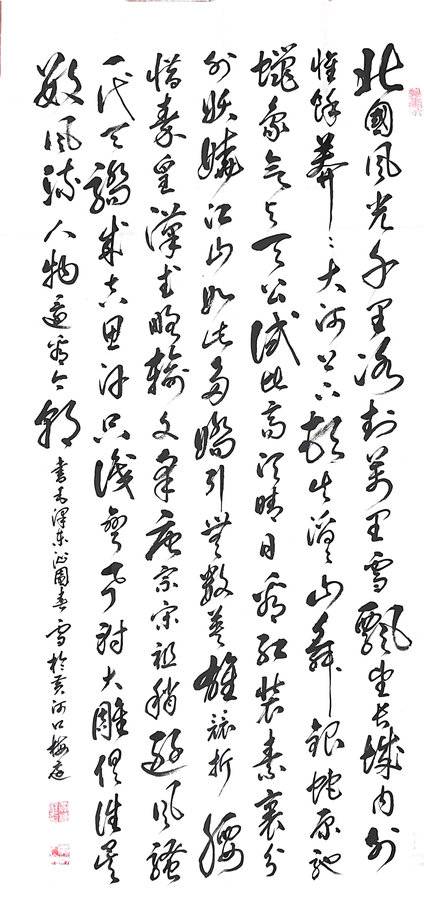 北國風光千里冰封萬里雪飄望長城内外
惟餘莽〻大河上下頓失滔〻山舞銀蛇原馳
蠟象欲与天公試比高須晴日看紅裝素裹分
外妖嬈江山如此多嬌引無數英雄競折腰
惜秦皇漢武略輸文采唐宗宋祖稍遜風騷
一代天驕成吉思汗只識彎弓射大雕俱往矣
數風流人物還看今朝
書毛澤東沁園春雪於黄河口梅